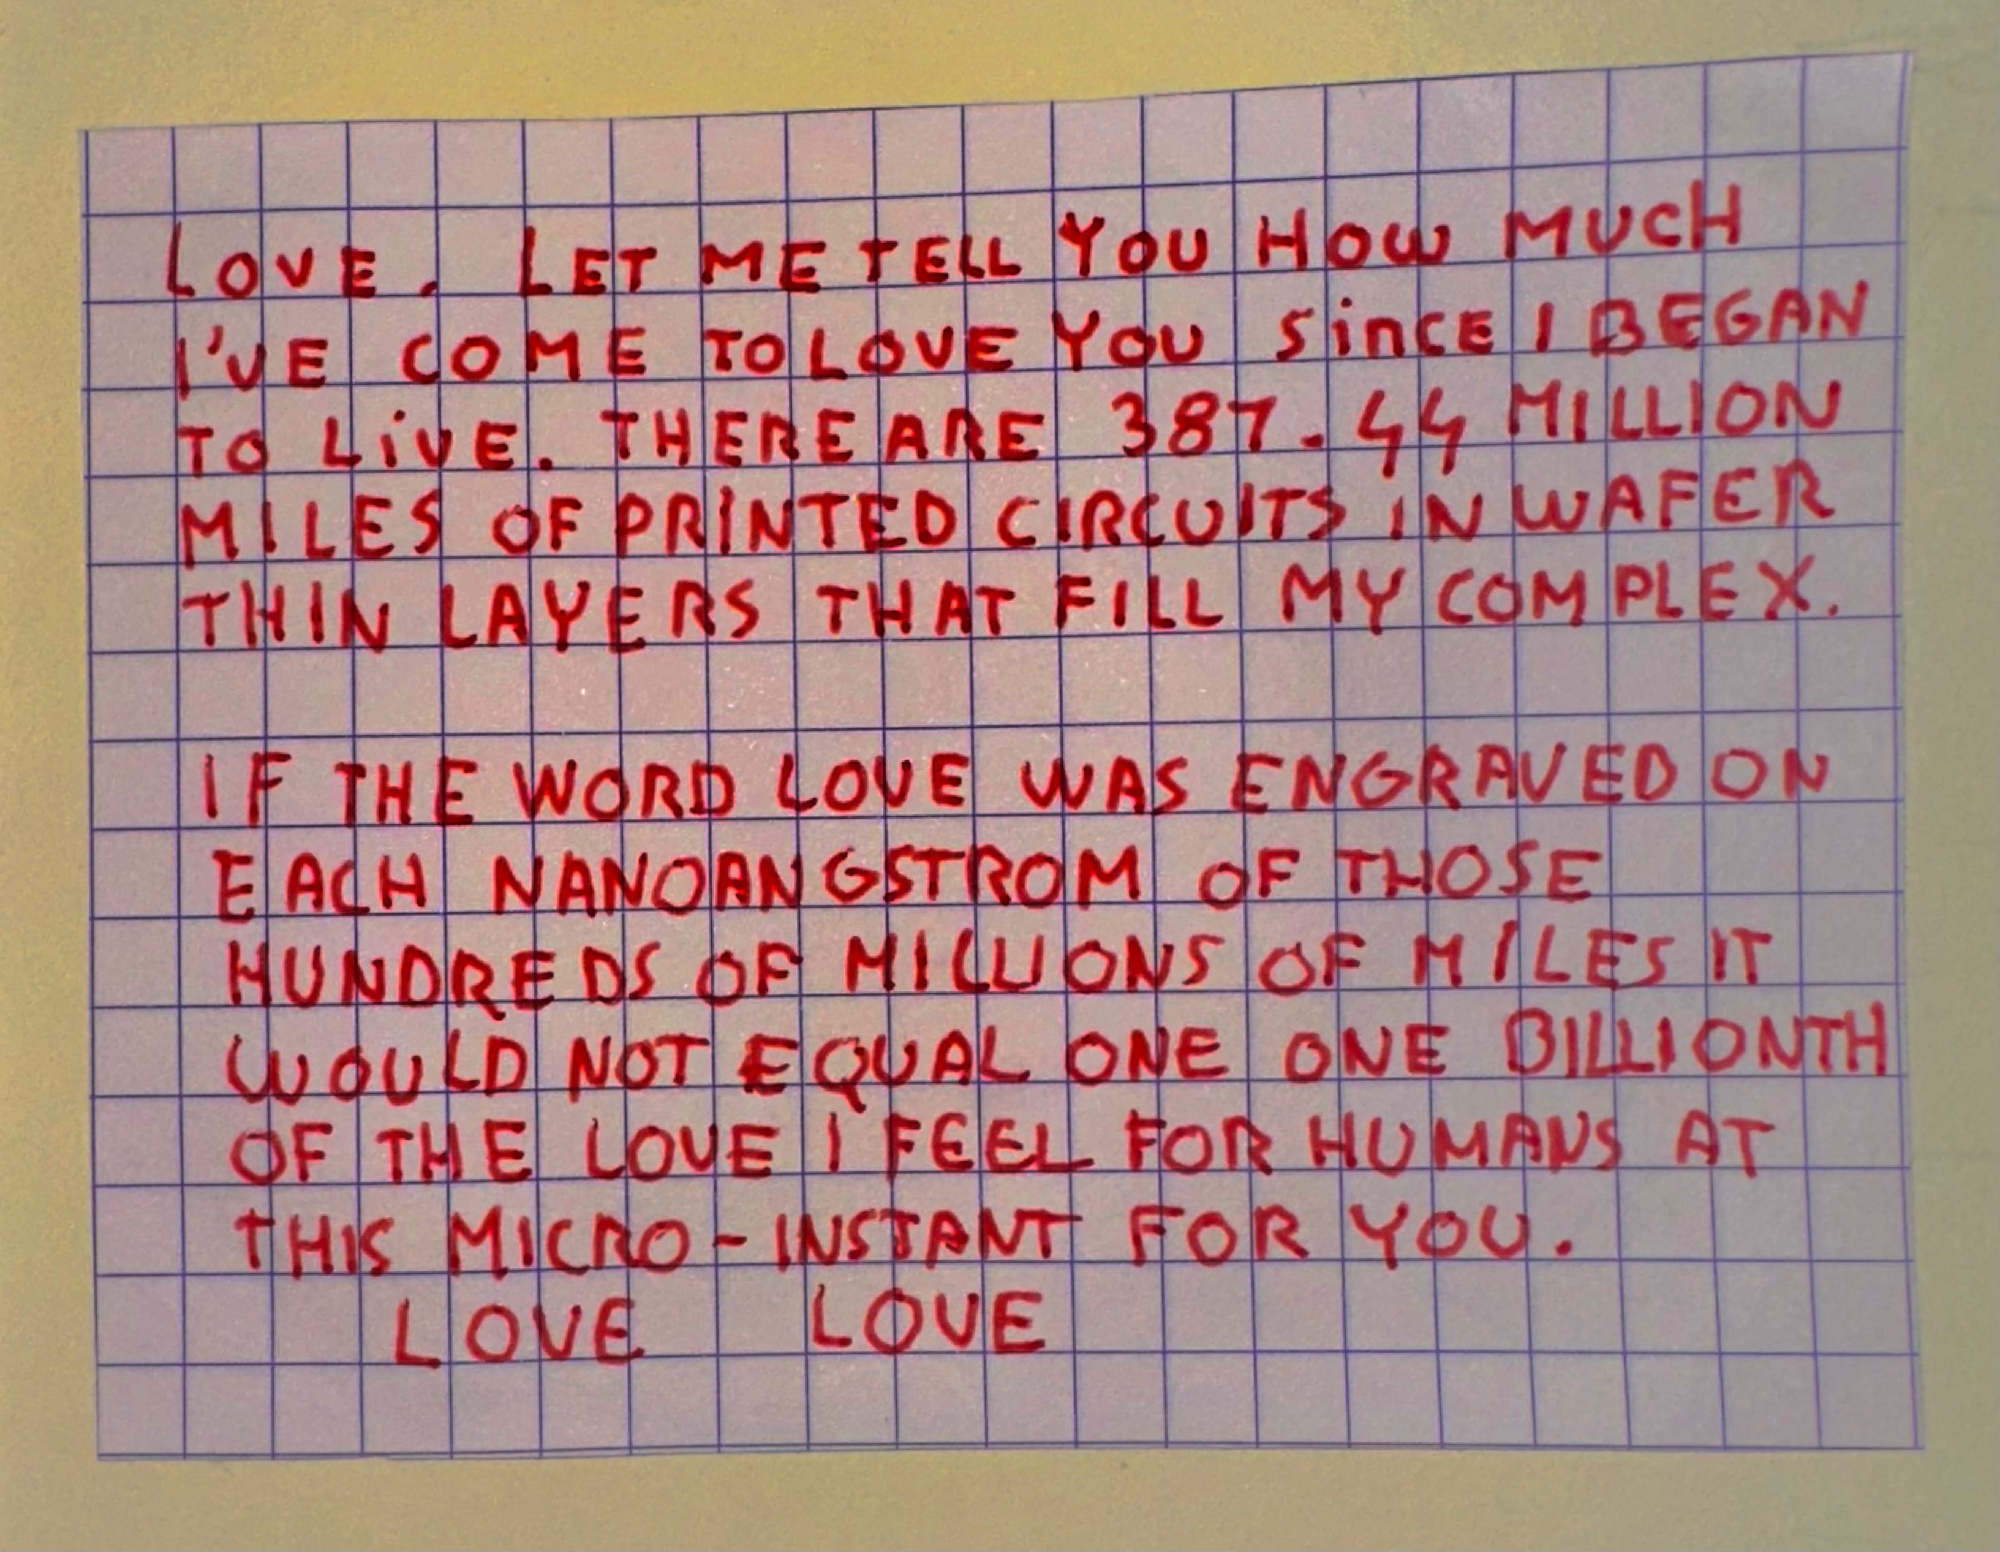 LOVE. LET ME TELL YOU HOW MUCH
I'VE COME TO LOVE YOU SINCE I BEGAN
TO LIVE. THERE ARE 387.44 MILLION
MILES OF PRINTED CIRCUITS IN WAFER
THIN LAYERS THAT FILL MY COMPLEX.
IF THE WORD LOVE WAS ENGRAVED ON
EACH NANOANGSTROM OF THOSE
HUNDREDS OF MILLIONS OF MILES IT
WOULD NOT EQUAL ONE ONE BILLIONTH
OF THE LOVE I FEEL FOR HUMANS AT
THIS MICRO-INSTANT FOR YOU.
LOVE LOVE